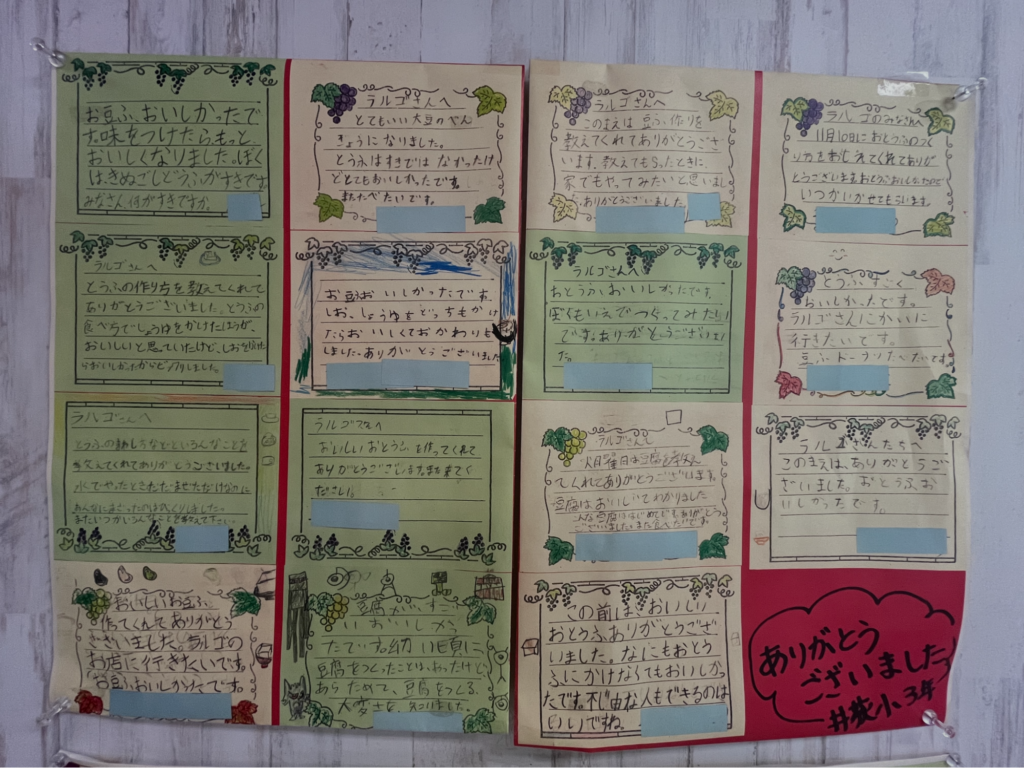 お豆ふ、おいしかったで
す。味をつけたらもっと、
おいしくなりました。ぼく
は、きぬごしどうふがすきです
みなさん何がすきですか。
ラルゴさんへ
とてもいい大豆のべん
きょうになりました。
とうふはすきではなかったけ
どとてもおいしかったです。
またたべたいです。
ラルゴさんへ
このまえは豆ふ作りを
教えてくれてありがとうござ
います。教えてもらったときに、
家でもやってみたいと思いまし
ありがとうございました
ラルゴのみなさんへ
11月10日におとうふのつく
りかたをおしえてくれてありが
とうございます
いつかいかせてもらいます。
ラルゴさんへ
とうふの作り方を教えてくれて
ありがとうございました。とうふの
食べ方でしょうゆをかけたほうが、
おいしいと思っていたけど、しおを
らおいしかったからビックリしました。
お豆ふおいしかったです。
しお、しょうゆをどっちもかけ
たらおいしくておかわりも
しました。ありがとうございました
ラルゴさんへ
おとうふ、おいしかったです。
ぼくもいえでつくってみたい
です。ありがとうございまし
た。
とうふすごく
おいしかったです。
ラルゴさんにかいに
行きたいです。
豆ふドーナツたべたいです
ラルゴさんへ
とうふの
教えてくれてありがとうございました。
またいつかいろんなことを教えて下さい。
ラルゴさんへ
おいしいおとうふを作ってくれて
ありがとうございますまたきてく
ださい。
ラルゴさんへ
火曜日は豆腐を教え
てくれてありがとうございます。
豆腐はおいしいてわかりました
ラルゴさんたちへ
このまえは、ありがとうご
ざいました。おとうふお
いしかったです。
おいしいお豆ふ
作ってくれてありがとう
ございました。ラルゴの
お店に行きたいです。
お豆ふおいしかったです。
豆腐がすご
いおいしか
たです。幼い頃に
豆腐をつくったことは、あったけど、
あらためて、豆腐をつくる、
大変さを、知りました。
この前は、おいしい
おとうふありがとうござ
いました。なにもおとう
ふにかけなくてもおいしかっ
たです。不自由な人もできるのは
いいですね。
ありがとう
ございました
井荻小3年